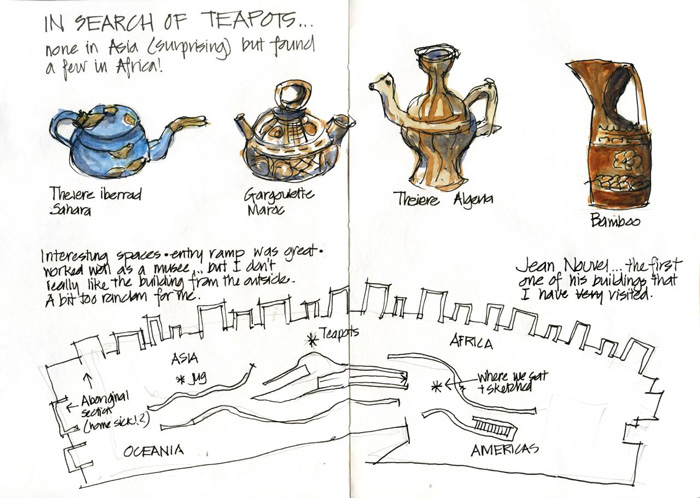 IN SEARCH OF TEAPOTS...
none in Asia (surprising) but found
a few in Africa!
Theiere iberrad
Sahara
Gargoulette
Maroc
Theiere Algeria
Bamboo
Interesting spaces • entry ramp was great •
worked well as a musee... but I don't
really like the building from the outside.
A bit too random for me.
Jean Nouvel... the first
one of his buildings that
I have very visited.
* Teapots
ASIA
AFRICA
* jug
* ← where we sat
+ sketched
← Aboriginal
section
(home sick!?)
OCEANIA
AMERICAS